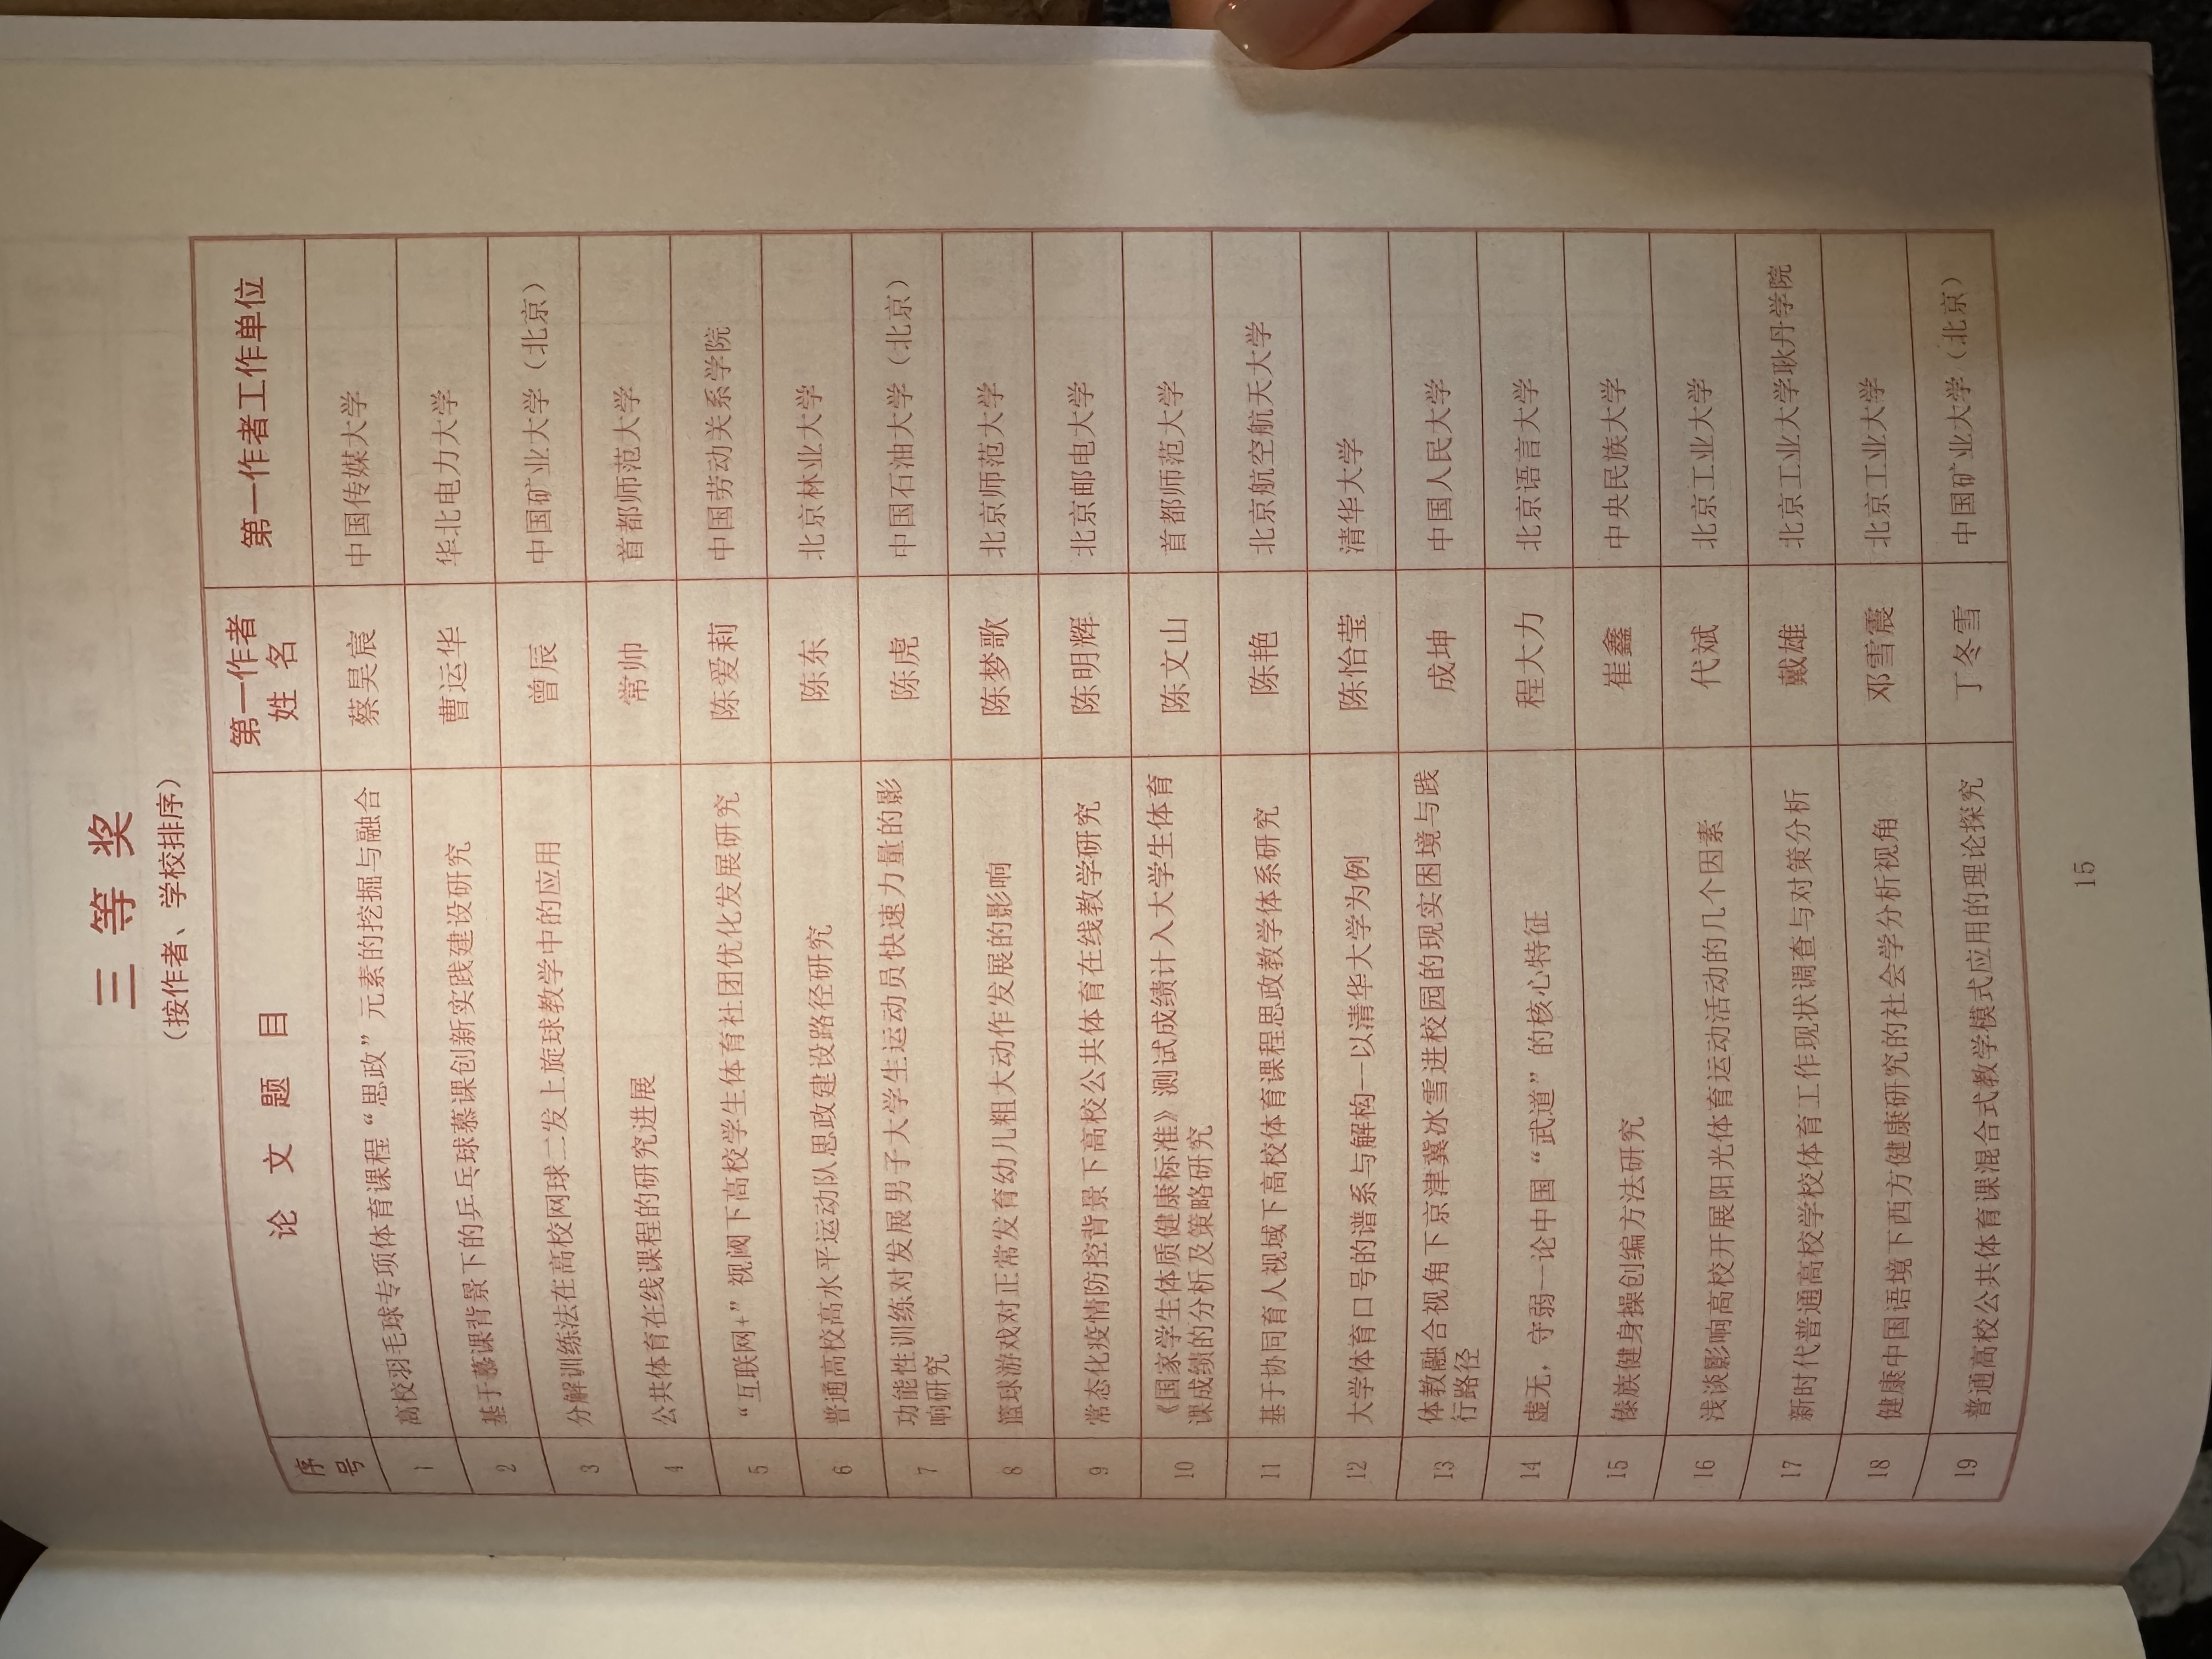 三等奖
（按作者、学校排序）
序号 论文题目 第一作者姓名 第一作者工作单位
1 高校羽毛球专项体育课程“思政”元素的挖掘与融合 蔡昊宸 中国传媒大学
2 基于慕课背景下的乒乓球慕课创新实践建设研究 曹运华 华北电力大学
3 分解训练法在高校网球二发上旋球教学中的应用 曾辰 中国矿业大学（北京）
4 公共体育在线课程的研究进展 常帅 首都师范大学
5 “互联网+”视阈下高校学生体育社团优化发展研究 陈爱莉 中国劳动关系学院
6 普通高校高水平运动队思政建设路径研究 陈东 北京林业大学
7 功能性训练对发展男子大学生运动员快速力量的影 陈虎 中国石油大学（北京）
响研究
8 篮球游戏对正常发育幼儿粗大动作发展的影响 陈梦歌 北京师范大学
9 常态化疫情防控背景下高校公共体育在线教学研究 陈明辉 北京邮电大学
10 《国家学生体质健康标准》测试成绩计入大学生体育 陈文山 首都师范大学
课成绩的分析及策略研究
11 基于协同育人视域下高校体育课程思政教学体系研究 陈艳 北京航空航天大学
12 大学体育口号的谱系与解构—以清华大学为例 陈怡莹 清华大学
13 体教融合视角下京津冀冰雪进校园的现实困境与践 成坤 中国人民大学
行路径
14 虚无，守弱—论中国“武道”的核心特征 程大力 北京语言大学
15 傣族健身操创编方法研究 崔鑫 中央民族大学
16 浅谈影响高校开展阳光体育运动活动的几个因素 代斌 北京工业大学
17 新时代普通高校学校体育工作现状调查与对策分析 戴雄 北京工业大学耿丹学院
18 健康中国语境下西方健康研究的社会学分析视角 邓雪震 北京工业大学
19 普通高校公共体育课混合式教学模式应用的理论探究 丁冬雪 中国矿业大学（北京）
15